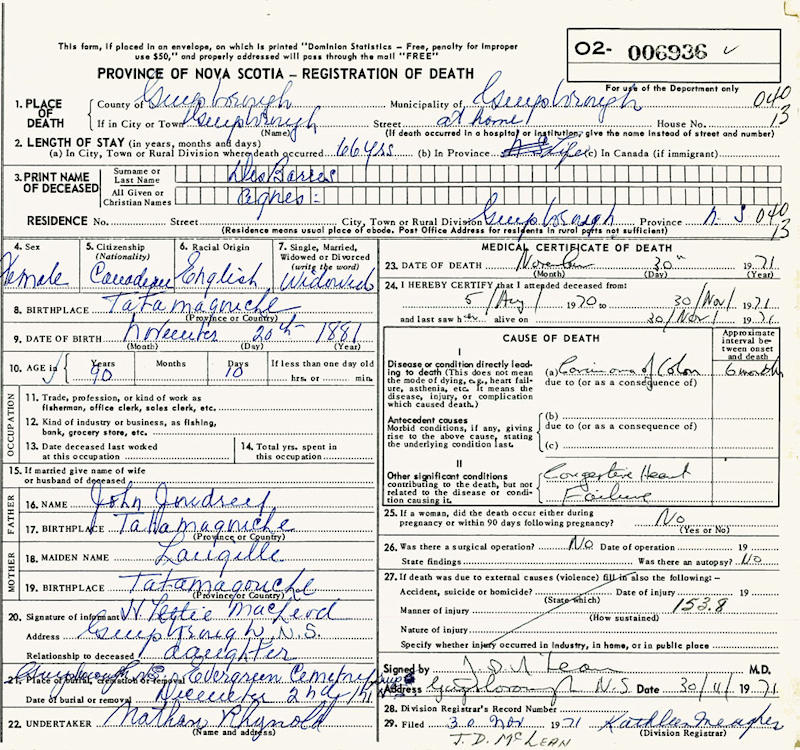 This form, if placed in an envelope, on which is printed "Dominion Statistics – Free, penalty for improper
use $50," and properly addressed will pass through the mail "FREE"
O2- 006936
PROVINCE OF NOVA SCOTIA – REGISTRATION OF DEATH
For use of the Department only
040
13
1. PLACE OF DEATH
County of Guysborough Municipality of Guysborough
If in City or Town Guysborough Street at home House No.
(Name) (If death occurred in a hospital or institution, give the name instead of street and number)
2. LENGTH OF STAY (in years, months and days)
(a) In City, Town or Rural Division where death occurred 66 yrs (b) In Province Life (c) In Canada (if immigrant)
3. PRINT NAME OF DECEASED
Surname or Last Name DesBarres
All Given or Christian Names Agnes:
RESIDENCE No. Street City, Town or Rural Division Guysborough Province N. S 040
13
(Residence means usual place of abode. Post Office Address for residents in rural parts not sufficient)
4. Sex Female
5. Citizenship (Nationality) Canadian
6. Racial Origin English
7. Single, Married, Widowed or Divorced (write the word) Widowed
8. BIRTHPLACE Tatamagouche
(Province or Country)
9. DATE OF BIRTH November 20th 1881
(Month) (Day) (Year)
10. AGE in Years 90 Months Days 10 If less than one day old
hrs. or min.
OCCUPATION
11. Trade, profession, or kind of work as
fisherman, office clerk, sales clerk, etc.
12. Kind of industry or business, as fishing,
bank, grocery store, etc.
13. Date deceased last worked
at this occupation
14. Total yrs. spent in
this occupation
15. If married give name of wife
or husband of deceased
FATHER
16. NAME John
17. BIRTHPLACE Tatamagouche
(Province or Country)
MOTHER
18. MAIDEN NAME Langille
19. BIRTHPLACE Tatamagouche
(Province or Country)
20. Signature of informant MacLeod
Address Guysborough N.S.
Relationship to deceased daughter
21. Place of burial, cremation or removal Guysborough Evergreen Cemetery
Date of burial or removal December 2nd 71
22. UNDERTAKER Nathan
(Name and address)
MEDICAL CERTIFICATE OF DEATH
23. DATE OF DEATH November 30th 1971
(Month) (Day) (Year)
24. I HEREBY CERTIFY that I attended deceased from:
5/Aug/ 1970 to 30/Nov/ 1971
and last saw her alive on 30/Nov/ 1971
CAUSE OF DEATH
Approximate interval between onset and death
I
Disease or condition directly leading to death (This does not
mean the mode of dying, e.g., heart failure,
asthenia, etc. It means the
disease, injury, or complication
which caused death.)
(a) Carcinoma of Colon 6 months
due to (or as a consequence of)
Antecedent causes
Morbid conditions, if any, giving
rise to the above cause, stating
the underlying condition last.
(b)
due to (or as a consequence of)
(c)
II
Other significant conditions
contributing to the death, but not
related to the disease or condition
causing it.
Congestive Heart
Failure
25. If a woman, did the death occur either during
pregnancy or within 90 days following pregnancy? No
(Yes or No)
26. Was there a surgical operation? No Date of operation 19
State findings Was there an autopsy? No
27. If death was due to external causes (violence) fill in also the following:–
Accident, suicide or homicide? Date of injury 19
(State which)
Manner of injury 153.8
(How sustained)
Nature of injury
Specify whether injury occurred in Industry, in home, or in public place
Signed by J. D. McLean M.D.
Address Guysborough N.S. Date 30/11/ 1971
28. Division Registrar's Record Number
29. Filed 30 Nov 1971 Kathleen Meagher
(Division Registrar)
J. D. McLEAN